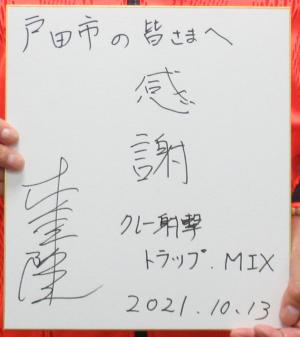 戸田市の皆さまへ
感
謝
クレー射撃
トラップ.MIX
2021.10.13